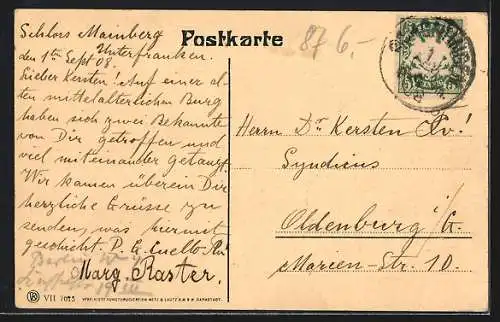 Schloss Mainberg
Unterfranken.
den 1ten Sept 08.
Lieber Kersten! Auf einer al-
ten mittelalterlichen Burg
haben sich zwei Bekannte
von Dir getroffen und
viel miteinander getanzt.
Wir kamen überein Dir
herzliche Grüsse zu
senden, was hiermit
geschieht. P. G.
Marg. Raster.
Berlin W
VII 7025
Postkarte
87 6,-
Herrn Dr Kersten
Syndicus
Oldenburg i/G.
Marien-Str. 10.